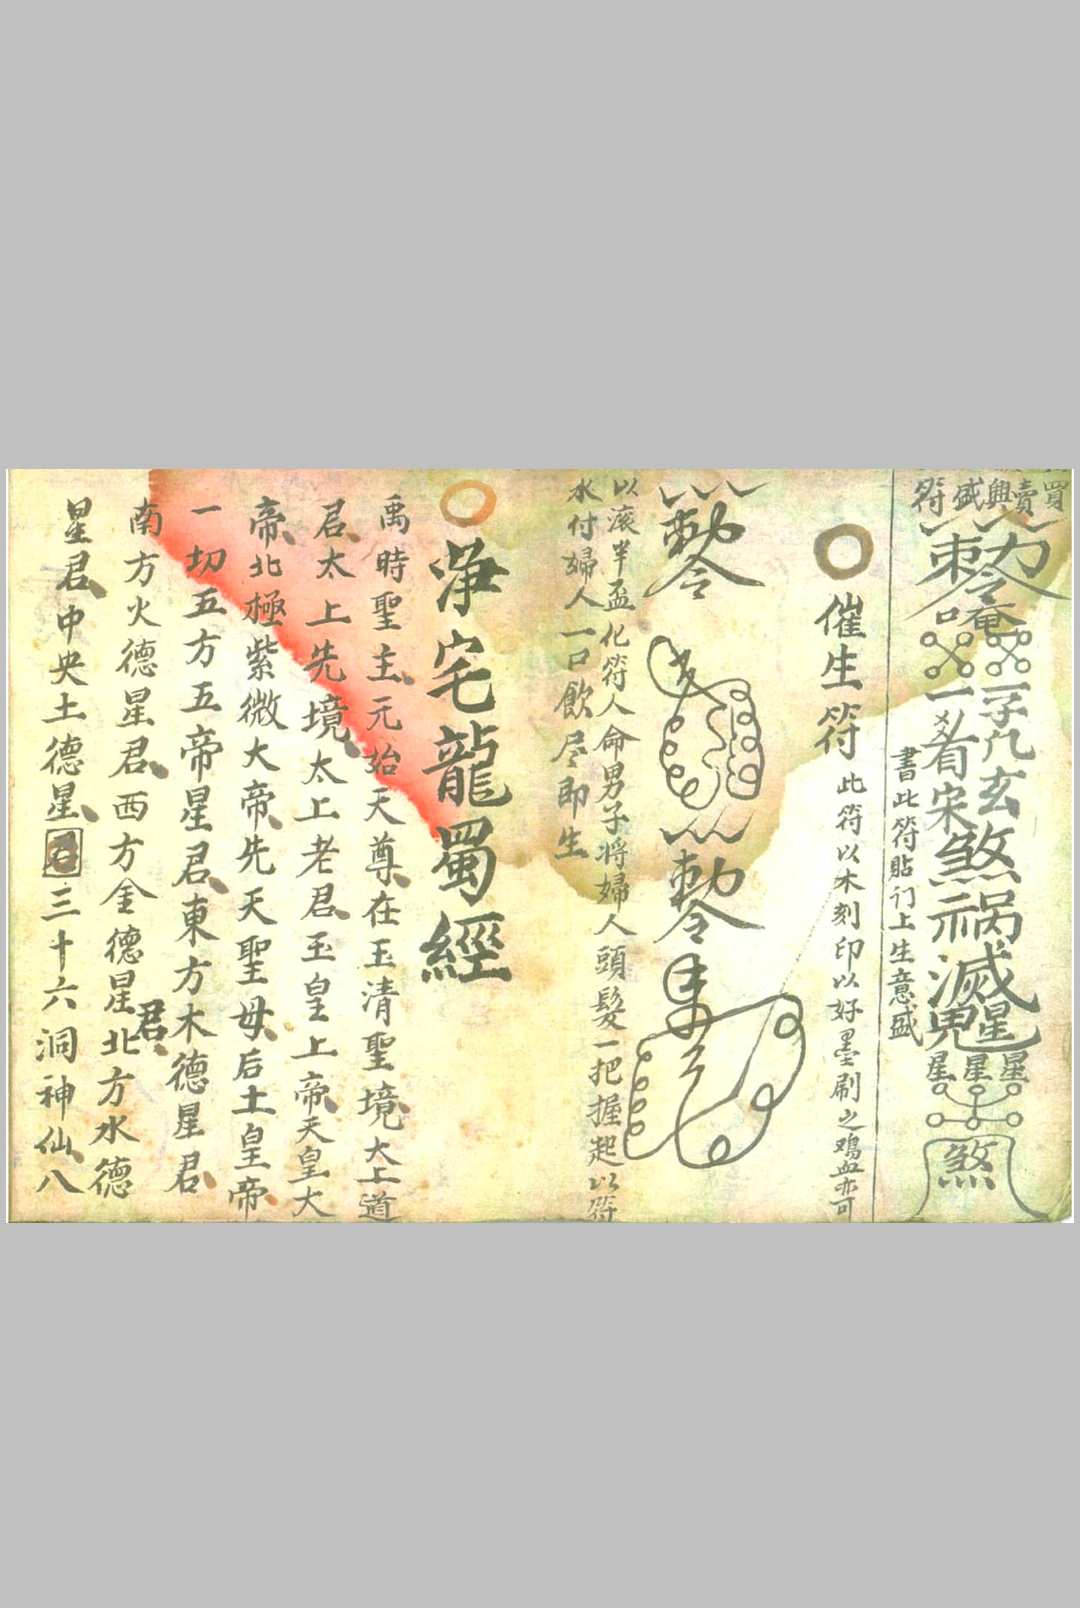 買賣興盛符
勅令
唵吽
書此符貼门上生意盛
催生符
此符以木刻印以好墨刷之鸡血亦可
勅令
勅令
以滚半盃化符人命男子将婦人頭髮一把握起以符
水付婦人一口飲尽即生
净宅龍蜀經
禹時聖主元始天尊在玉清聖境大上道
君太上先境太上老君玉皇上帝天皇大
帝北極紫微大帝先天聖母后土皇帝
一切五方五帝星君東方木德星君
南方火德星君西方金德星君北方水德
星君中央土德星君三十六洞神仙八